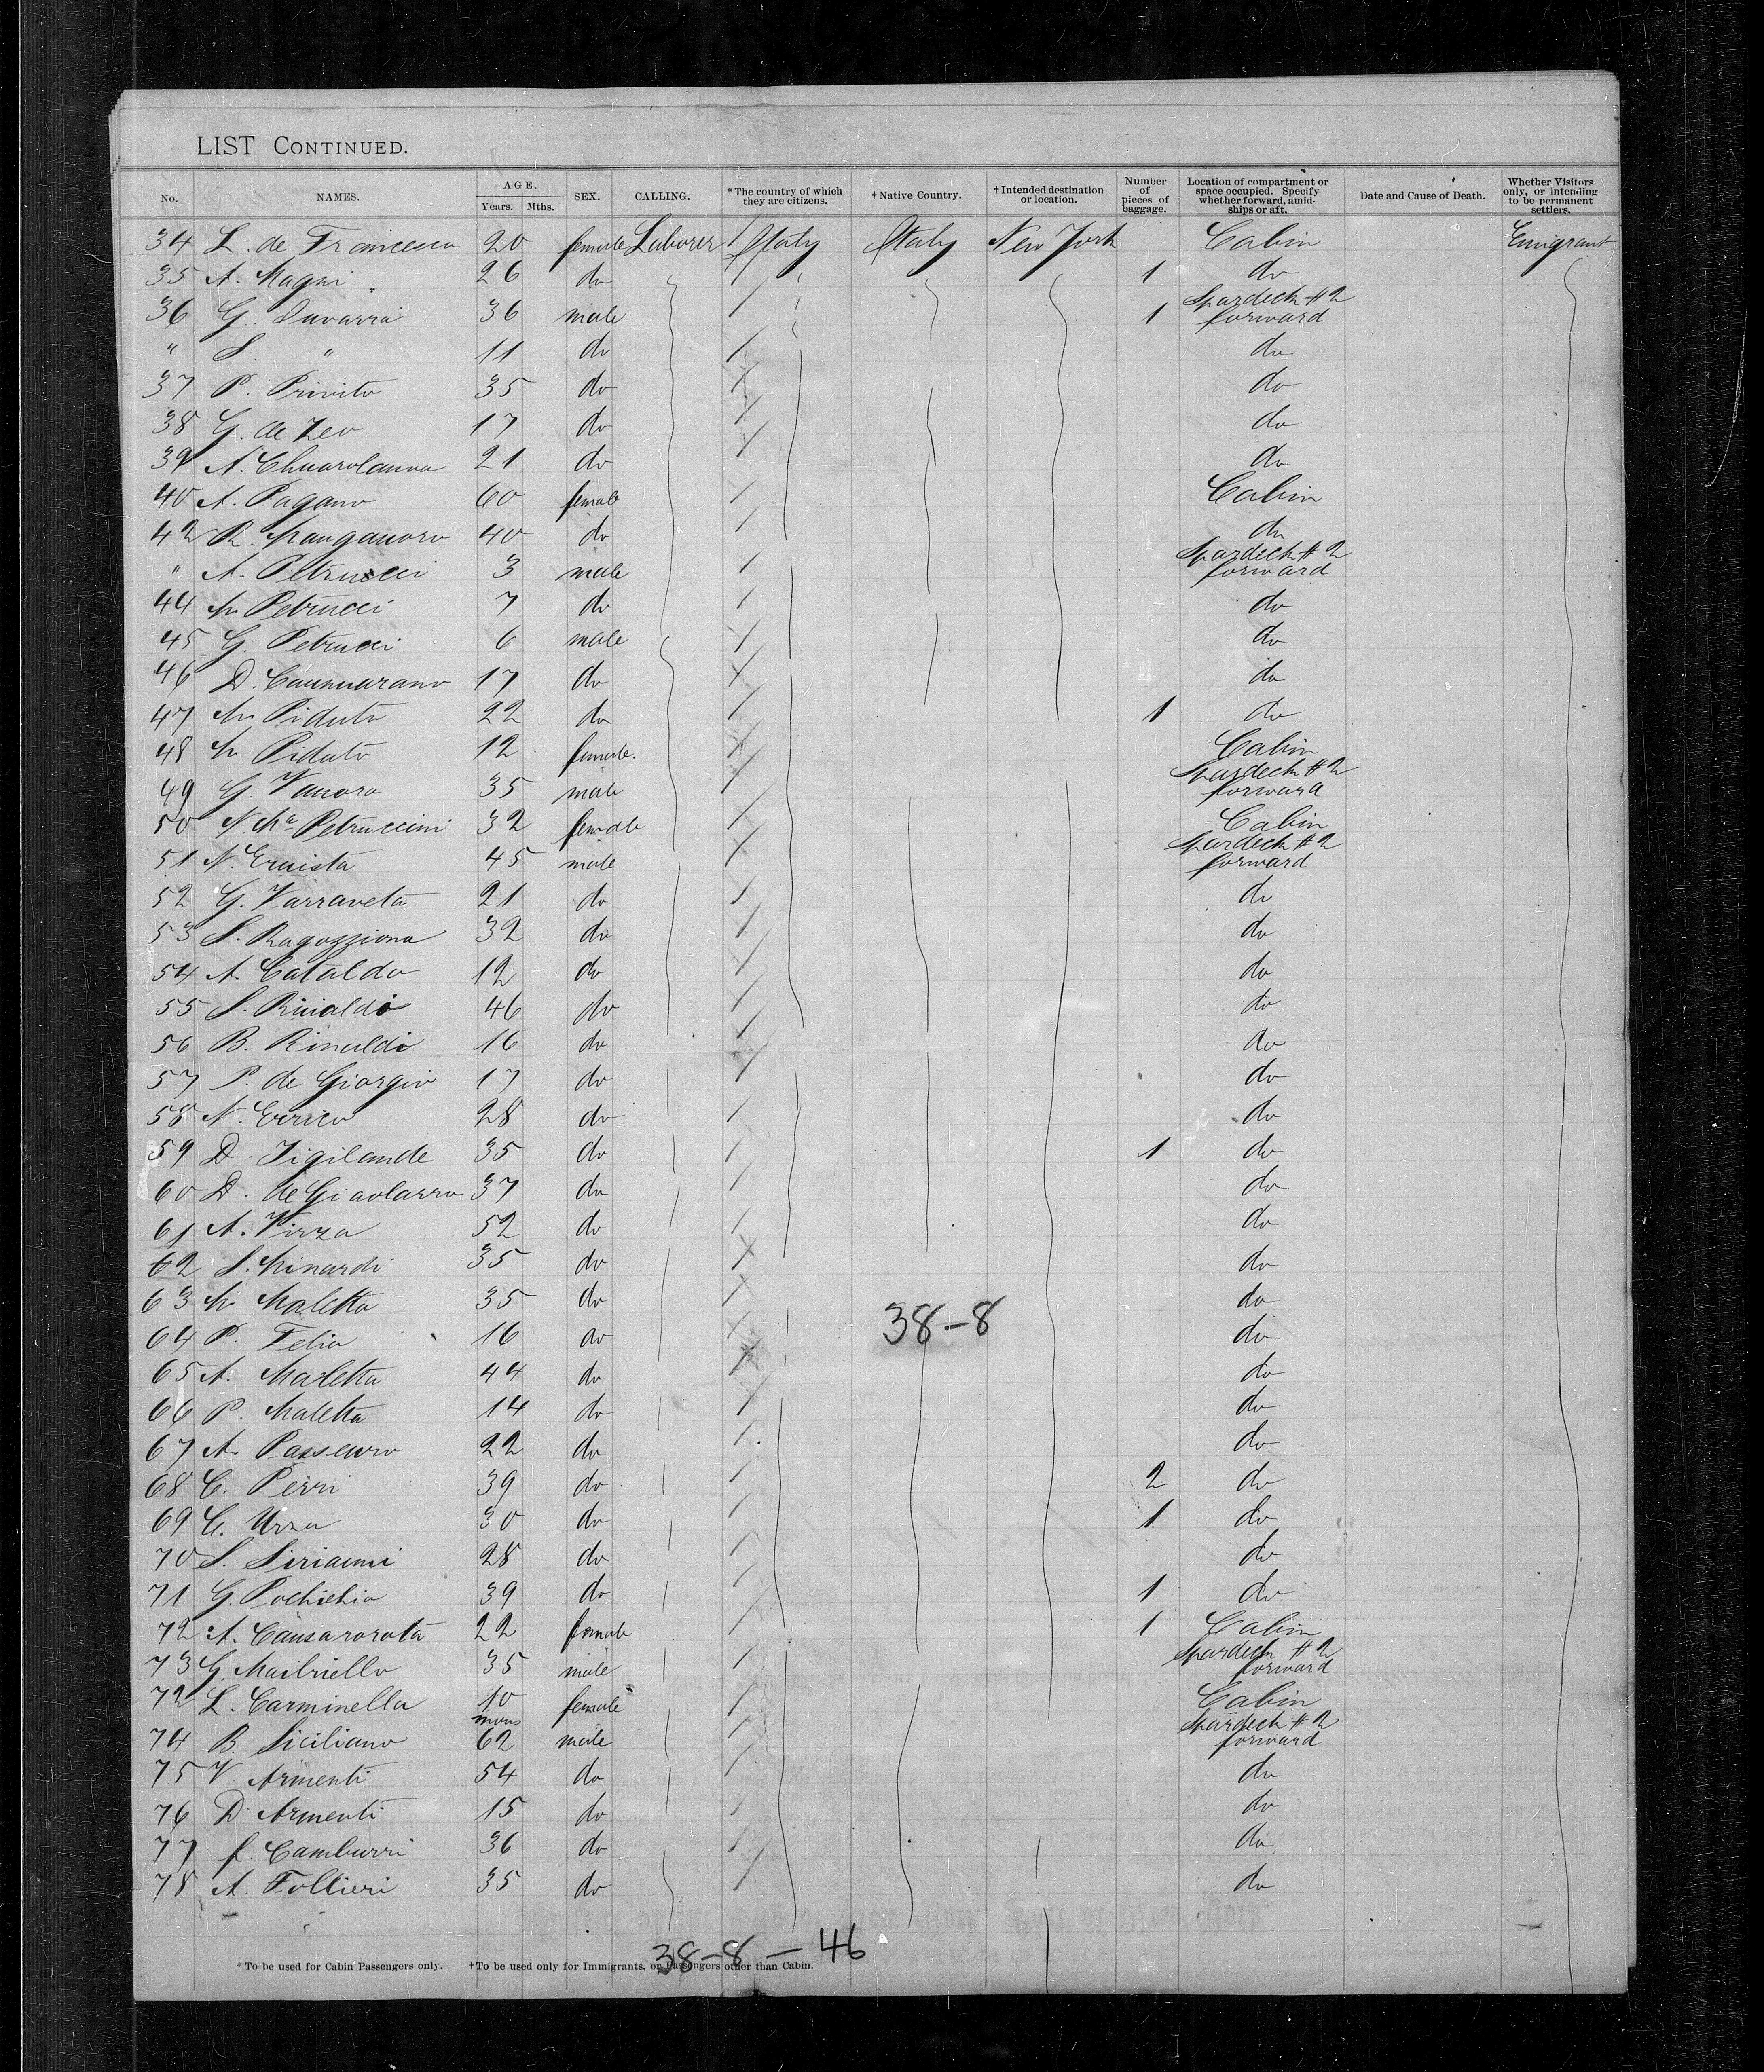 LIST CONTINUED.
No. NAMES. AGE. Years. Mths. SEX. CALLING. * The country of which they are citizens. † Native Country. † Intended destination or location. Number of pieces of baggage. Location of compartment or space occupied. Specify whether forward, amidships or aft. Date and Cause of Death. Whether Visitors only, or intending to be permanent settlers.
34 L. de Francesca 20 female Laborer Italy Italy New York Cabin Emigrant
35 A. Magni 26 do 1 do
36 G. 36 male 1 Spardeck #2 forward
" S. " 11 do do
37 P. Privito 35 do do
38 G. de Leo 17 do do
39 A. 21 do do
40 A. Pagano 60 female Cabin
42 R. Manganoro 40 do do
" A. Petrucci 3 male Spardeck #2 forward
44 M Petrucci 7 do do
45 G. Petrucci 6 male do
46 D. Cammarano 17 do do
47 M Piduto 22 do 1 do
48 M Piduto 12 female. Cabin
49 G. Vanora 35 male Spardeck #2 forward
50 N. Ma Petruccini 32 female Cabin
51 N. Eruista 45 male Spardeck #2 forward
52 G. Varraveta 21 do do
53 S. Ragozziona 32 do do
54 A. Cataldo 12 do do
55 S. Rinaldi 46 do do
56 B. Rinaldi 16 do do
57 P. de Giorgio 17 do do
58 N. Errico 28 do do
59 D. Tigilande 35 do 1 do
60 D. de Giaolarro 37 do do
61 A. Virza 52 do do
62 S. Minardi 35 do do
63 M Maletta 35 do do
64 P. Felia 16 do 38-8 do
65 A. Maletta 44 do do
66 P. Maletta 14 do do
67 A. 22 do do
68 C. Perri 39 do 2 do
69 C. Urza 30 do 1 do
70 S. Sirianni 28 do do
71 G. Pochichio 39 do 1 do
72 A. Causarorota 22 female 1 Cabin
73 G. Mailriello 35 male Spardeck #2 forward
72 L. Carminella 10 mons female Cabin
74 B. Siciliano 62 male Spardeck #2 forward
75 V Armenti 54 do do
76 D. Armenti 15 do do
77 f. Camburri 36 do do
78 A. Follieri 35 do do
38-8 - 46
* To be used for Cabin Passengers only. † To be used only for Immigrants, or Passengers other than Cabin.